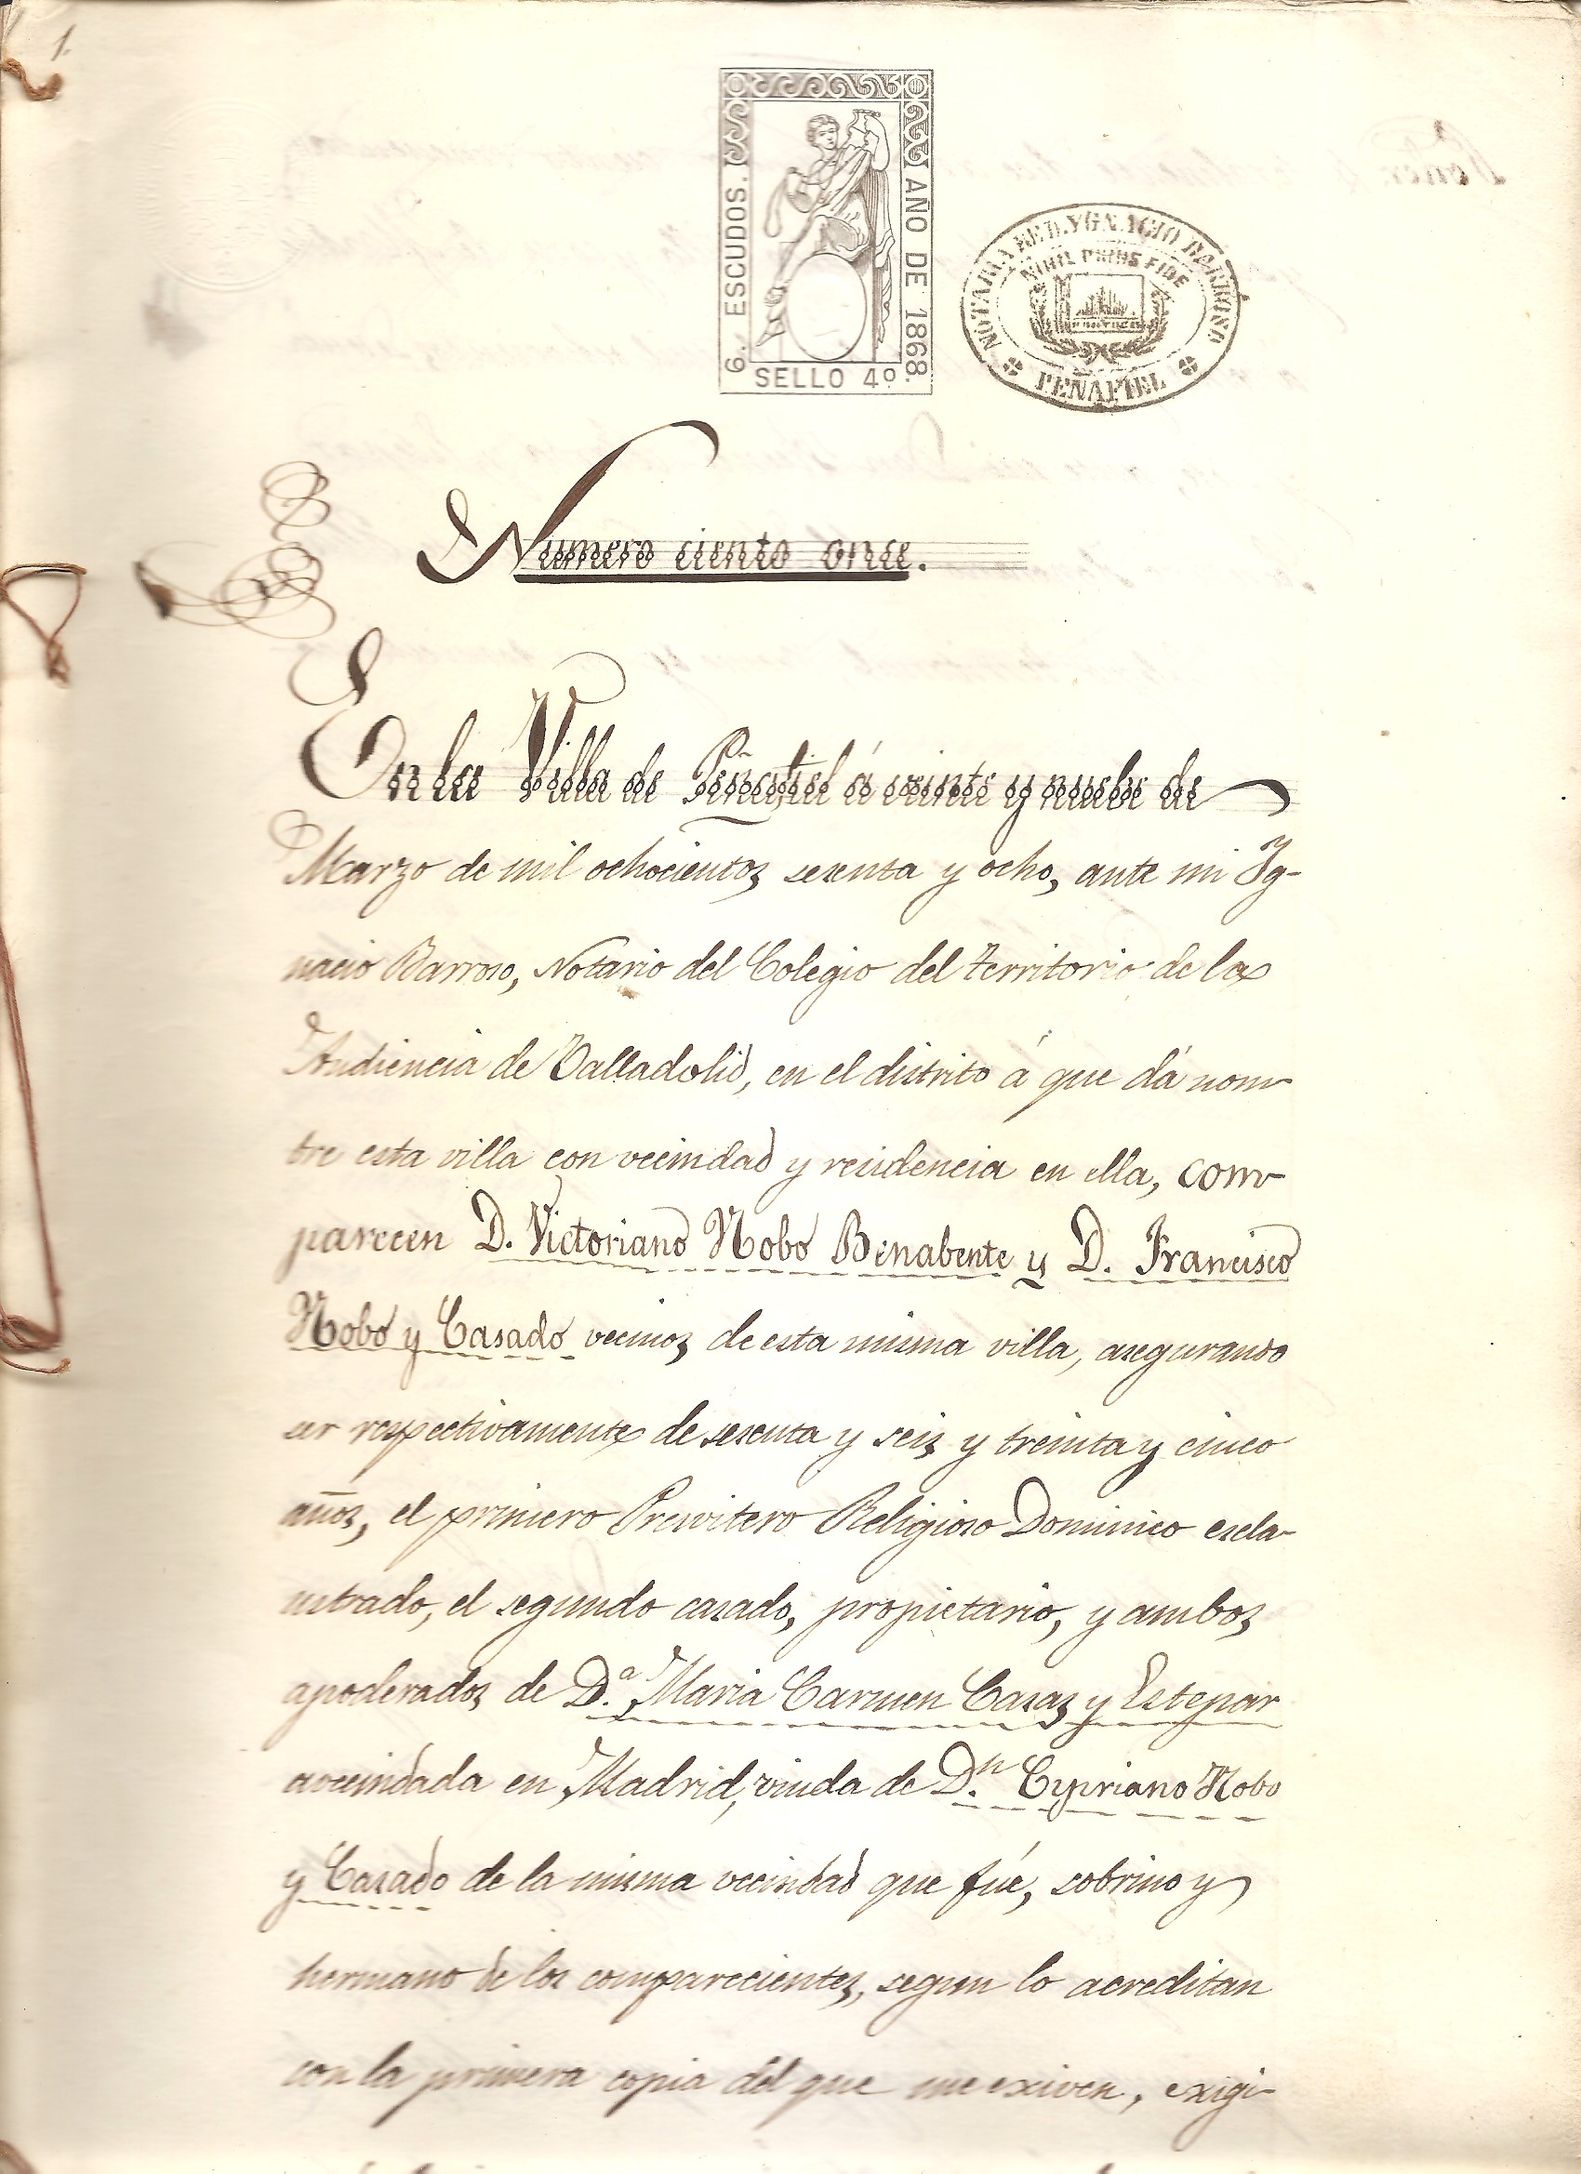 1.
6. ESCUDOS.
AÑO DE 1868.
SELLO 4º
NOTARIA DE D. YGNACIO BARROSO
NIHIL PRIUS FIDE
PEÑAFIEL
Numero ciento once.
En la Villa de Peñafiel á veinte y nuebe de
Marzo de mil ochocientos sesenta y ocho, ante mi Ig-
nacio Barroso, Notario del Colegio del territorio de la
Audiencia de Valladolid, en el distrito á que dá nom-
bre esta villa con vecindad y residencia en ella, com-
parecen D. Victoriano Nobo Benabente y D. Francisco
Nobo y Casado vecinos de esta misma villa, asegurando
ser respectivamente de sesenta y seis y treinta y cinco
años, el primero Presvitero Religioso Dominico escla-
ustrado, el segundo casado, propietario, y ambos
apoderados de D.ª Maria Carmen Casas y Estepar
avecindada en Madrid, viuda de D.n Cypriano Nobo
y Casado de la misma vecindad que fúe, sobrino y
hermano de los comparecientes, segun lo acreditan
con la primera copia dél que me exiven, exigi-